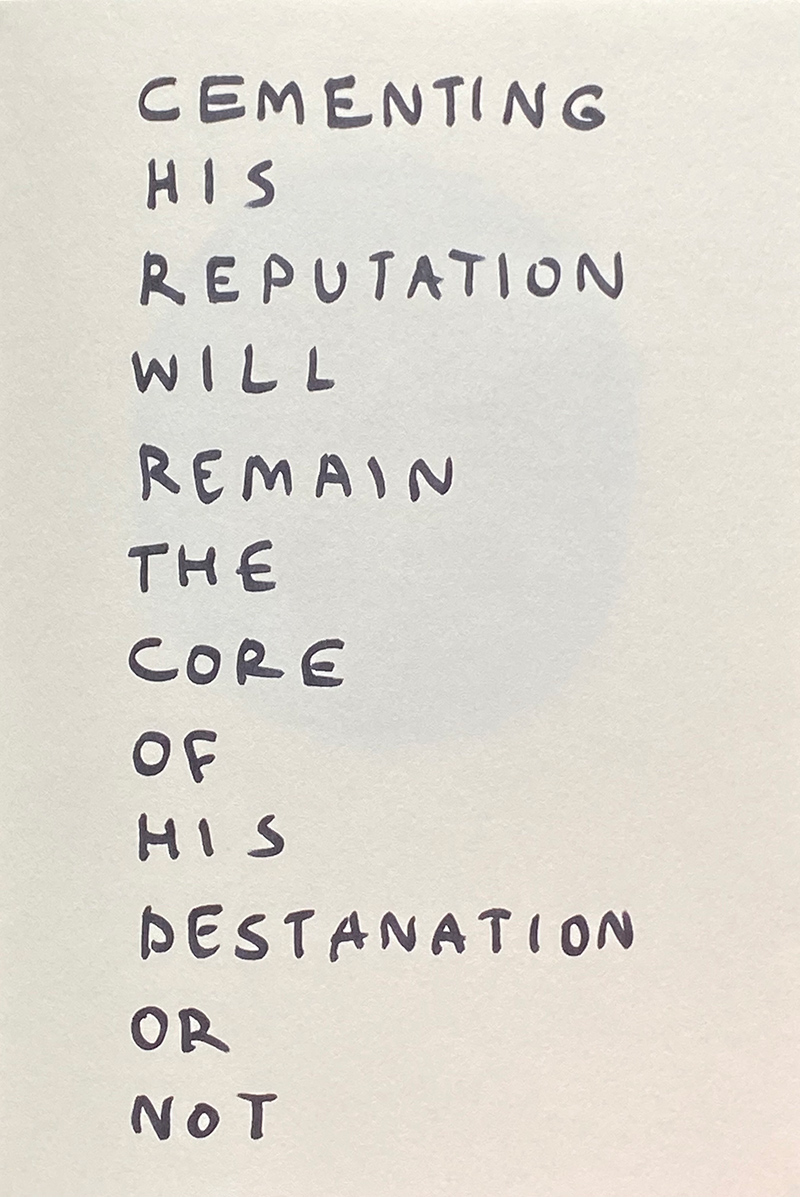 CEMENTING
HIS
REPUTATION
WILL
REMAIN
THE
CORE
OF
HIS
DESTANATION
OR
NOT